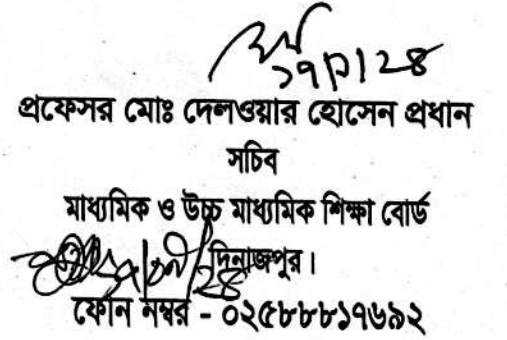 ১৭/১/২৪
প্রফেসর মোঃ দেলওয়ার হোসেন প্রধান
সচিব
মাধ্যমিক ও উচ্চ মাধ্যমিক শিক্ষা বোর্ড
দিনাজপুর।
ফোন নম্বর - ০২৫৮৮৮১৭৬৯২